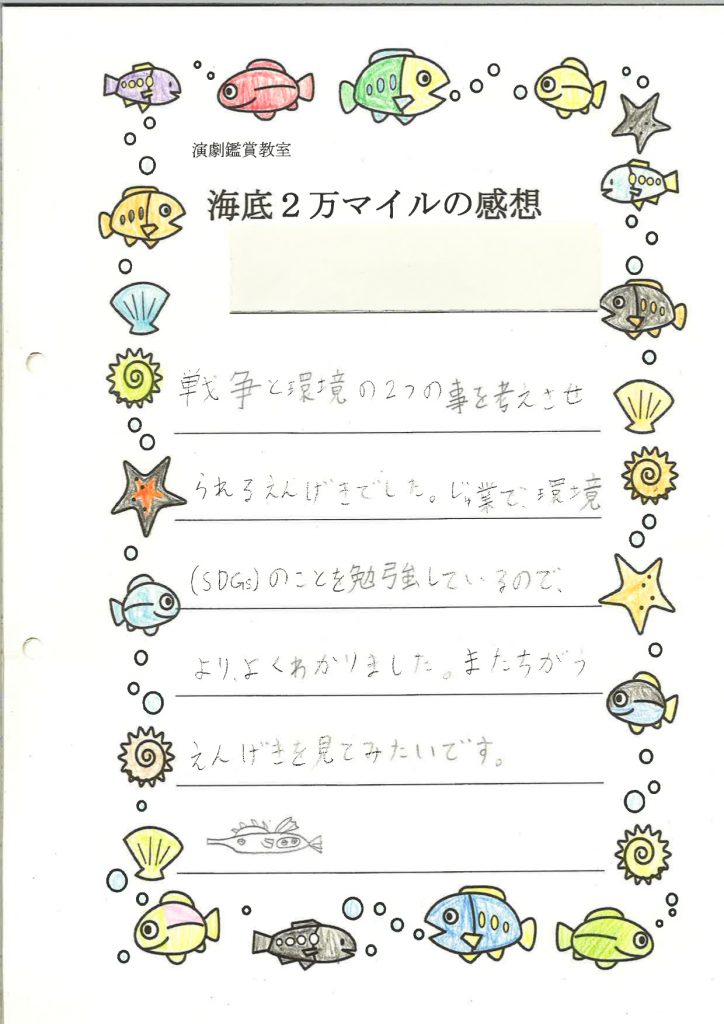 演劇鑑賞教室
海底２万マイルの感想
戦争と環境の2つの事を考えさせ
られるえんげきでした。じゅ業で、環境
(SDGs)のことを勉強しているので、
より、よくわかりました。またちがう
えんげきを見てみたいです。